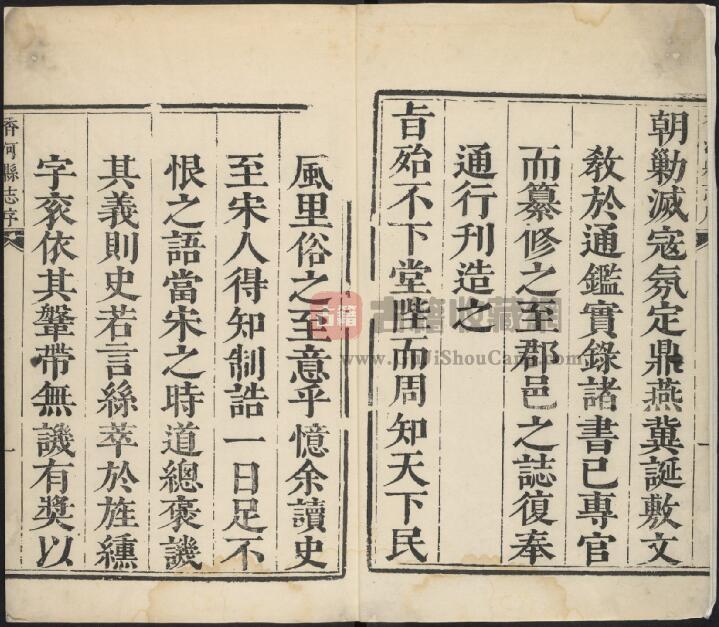 朝勦滅寇氛定鼎燕冀誕敷文
教於通鑑實錄諸書已專官
而纂修之至郡邑之誌復奉
通行刊造之
旨殆不下堂陛而周知天下民
風里俗之至意乎憶余讀史
至宋人得知制誥一日足不
恨之語當宋之時道總褒譏
其義則史若言絲萃於旌纁
字袞依其鞶帶無譏有奬以
香河縣志序
一
古籍收藏網
www.GuJiShouCang.com
古籍